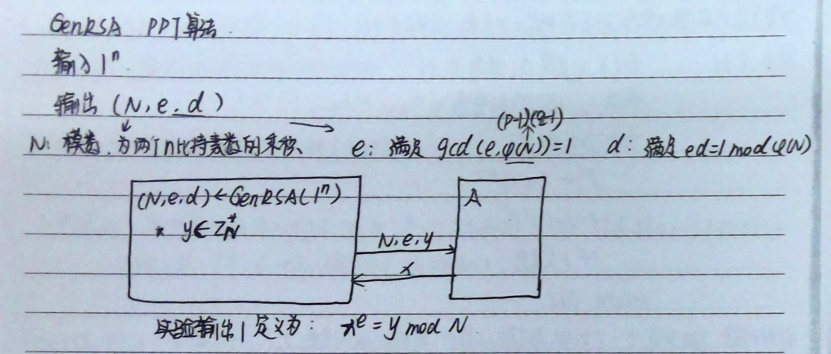 GenRSA PPT算法.
输入1ⁿ.
输出 (N, e, d)
(p-1)(q-1)
N: 模数, 为两个n比特素数的乘积、 e: 满足 gcd(e, φ(N))=1 d: 满足 ed=1 mod φ(N)
(N,e,d)←GenRSA(1ⁿ) A
* y∈Z*N
N, e, y
x
实验输出1定义为: xᵉ=y mod N